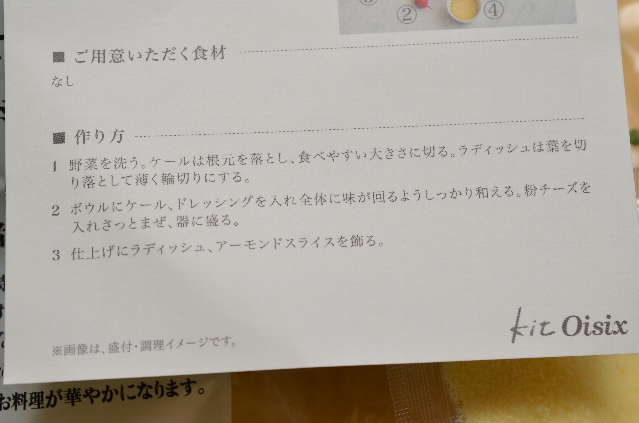 ② ④
■ ご用意いただく食材
なし
■ 作り方
1 野菜を洗う。ケールは根元を落とし、食べやすい大きさに切る。ラディッシュは葉を切
り落として薄く輪切りにする。
2 ボウルにケール、ドレッシングを入れ全体に味が回るようしっかり和える。粉チーズを
入れさっとまぜ、器に盛る。
3 仕上げにラディッシュ、アーモンドスライスを飾る。
kit Oisix
※画像は、盛付・調理イメージです。
お料理が華やかになります。